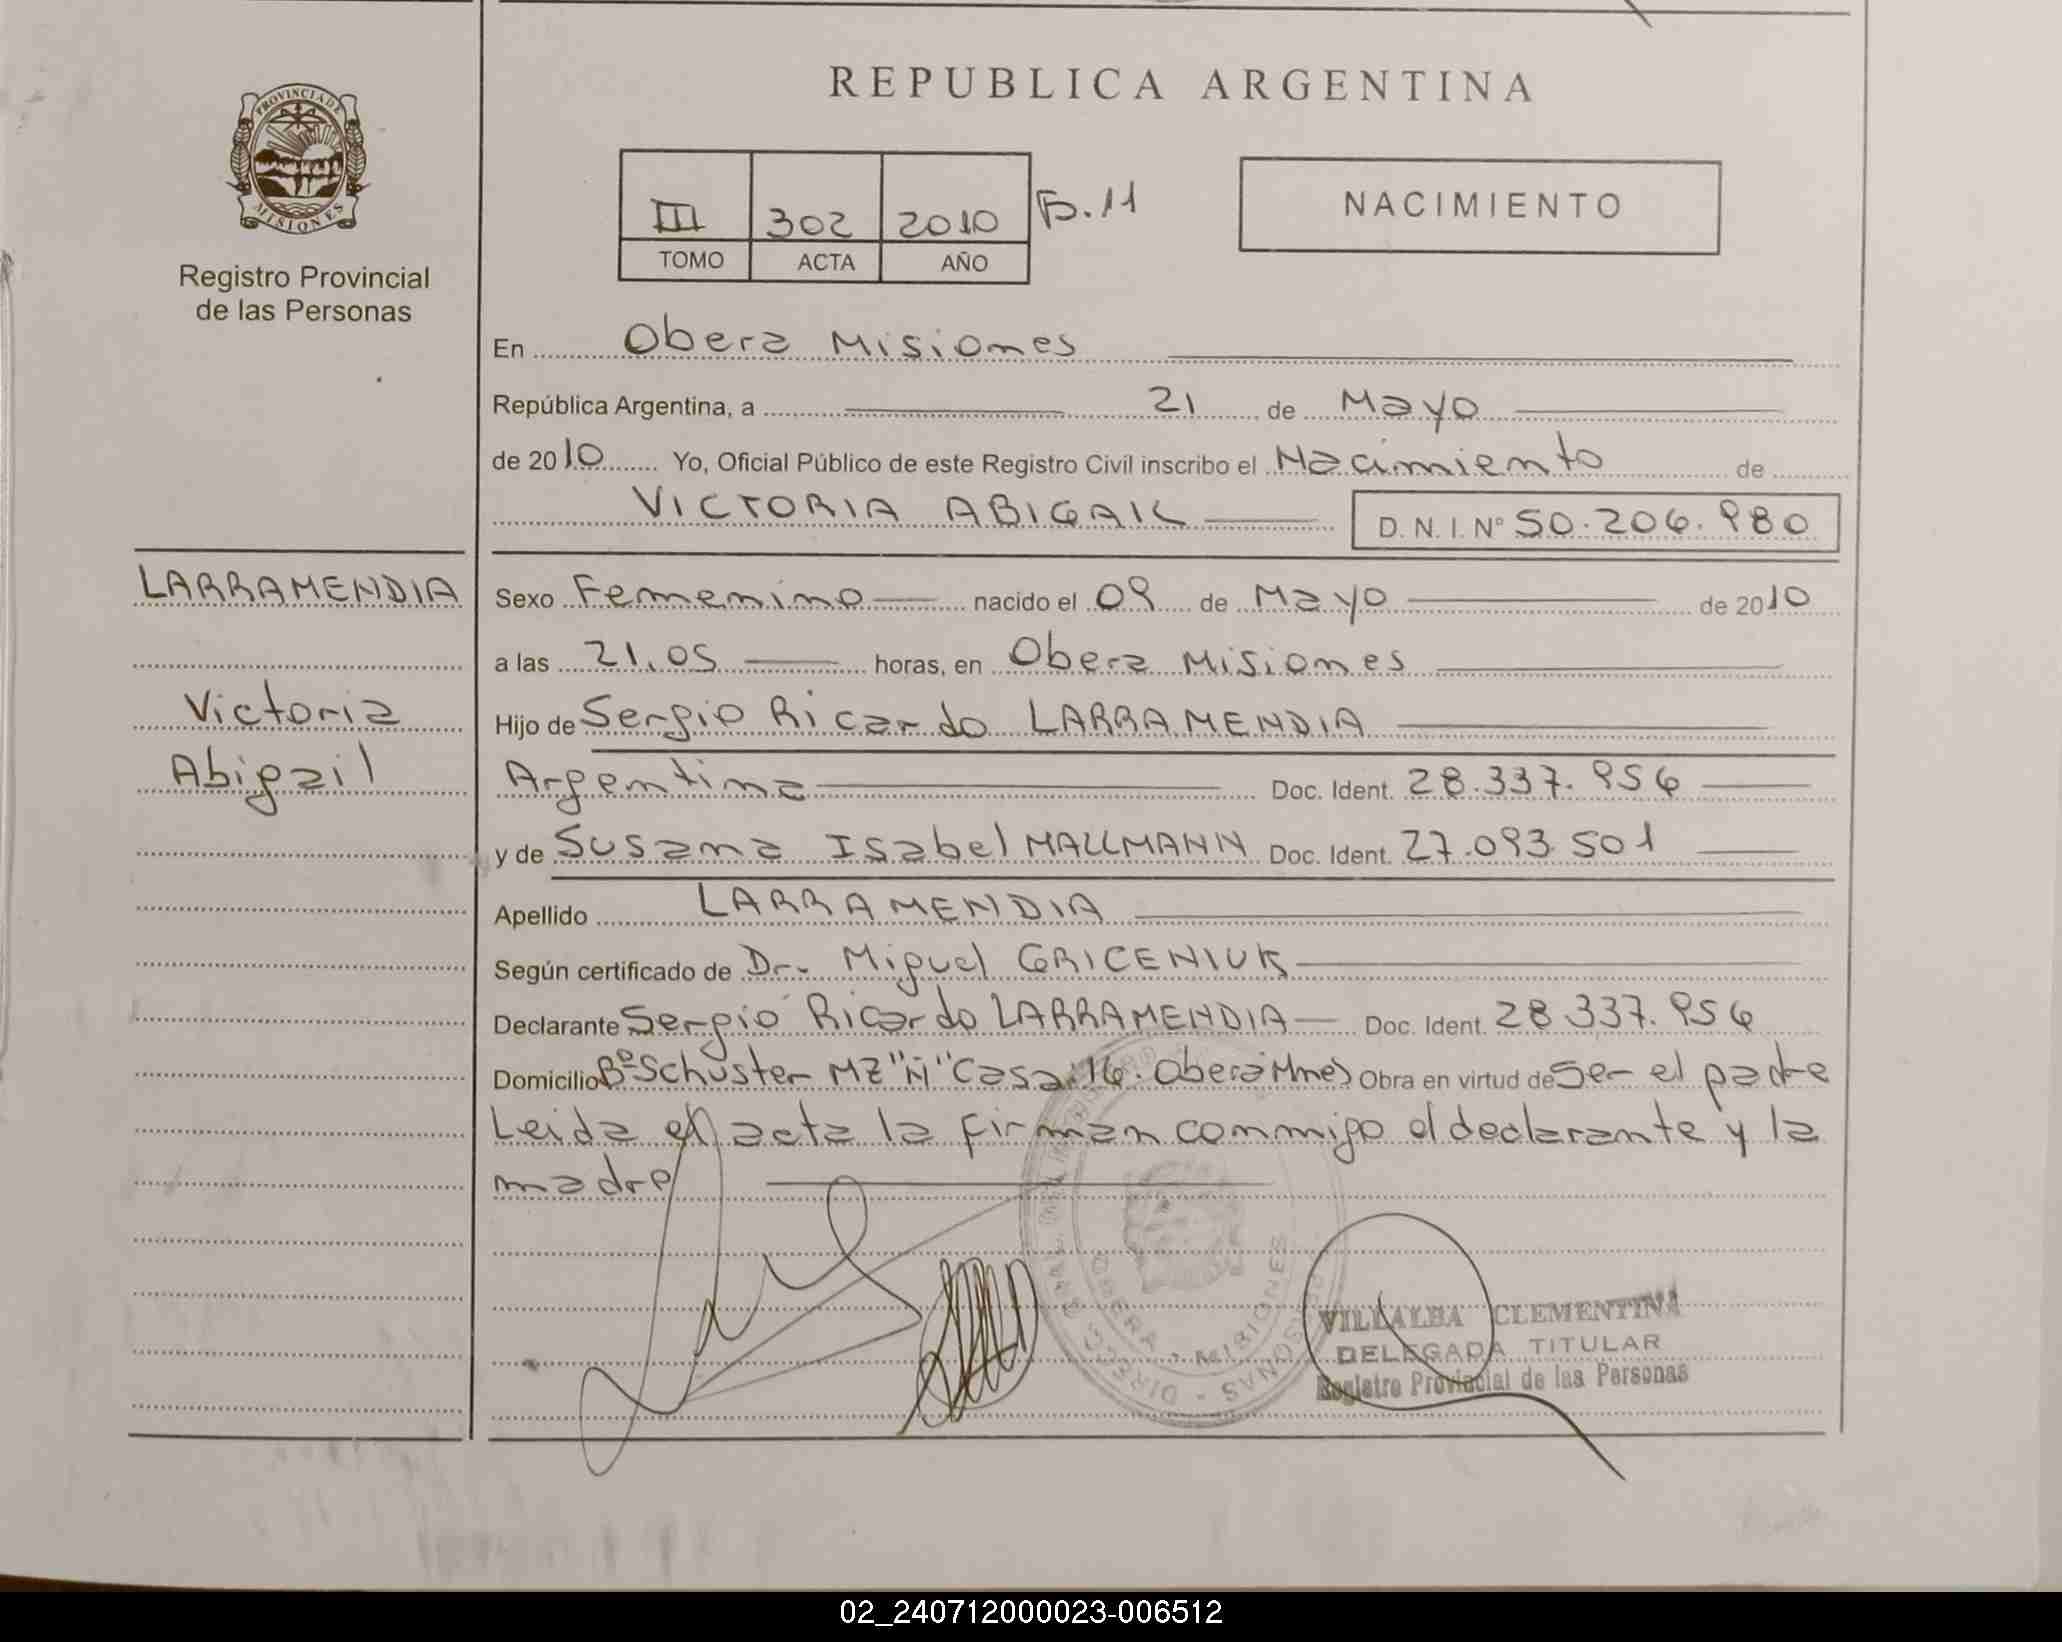 REPUBLICA ARGENTINA
PROVINCIA DE
MISIONES
Registro Provincial
de las Personas
III 302 2010 Fº.11
TOMO ACTA AÑO
NACIMIENTO
En Obera Misiones
República Argentina, a 21 de Mayo
de 2010 Yo, Oficial Público de este Registro Civil inscribo el Nacimiento de
VICTORIA ABIGAIL D.N.I.Nº 50.206.980
LARRAMENDIA
Victoria
Abigail
Sexo Femenino nacido el 09 de Mayo de 2010
a las 21.05 horas, en Obera Misiones
Hijo de Sergio Ricardo LARRAMENDIA
Argentina Doc. Ident. 28.337.956
y de Susana Isabel MALLMANN Doc. Ident. 27.093.501
Apellido LARRAMENDIA
Según certificado de Dr. Miguel GRICENIUK
Declarante Sergio Ricardo LARRAMENDIA Doc. Ident. 28.337.956
Domicilio Bº Schuster MZ "Ñ" Casa 16. Obera Mnes Obra en virtud de Ser el padre
Leida el acta la firman conmigo el declarante y la
madre
OBERA - MISIONES
VILLALBA CLEMENTINA
DELEGADA TITULAR
Registro Provincial de las Personas
02_240712000023-006512